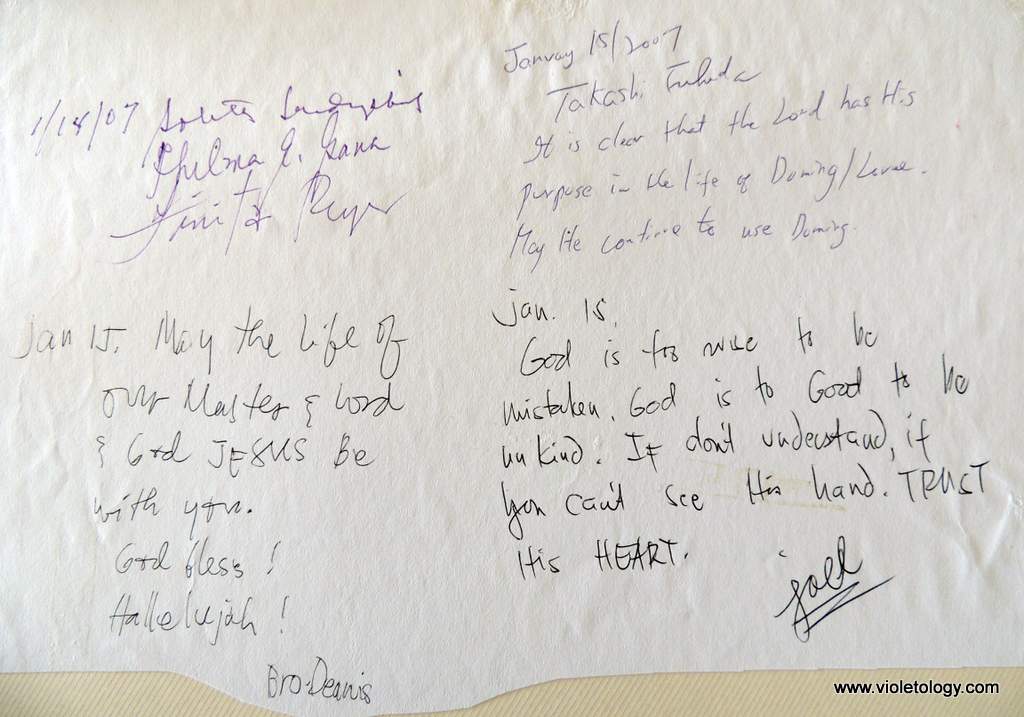 1/14/07
Thelma E. Gana
January 15/2007
Takashi Fukuda
It is clear that the Lord has His
purpose in the life of Doming/
May He continue to use Doming.
Jan 15. May the Life of
our Master & Lord
& God JESUS Be
with you.
God bless!
Hallelujah!
Bro. Dennis
Jan. 15,
God is too wise to be
mistaken. God is to Good to be
unkind. If don't understand, if
you can't see His hand. TRUST
His HEART.
joel
www.violetology.com